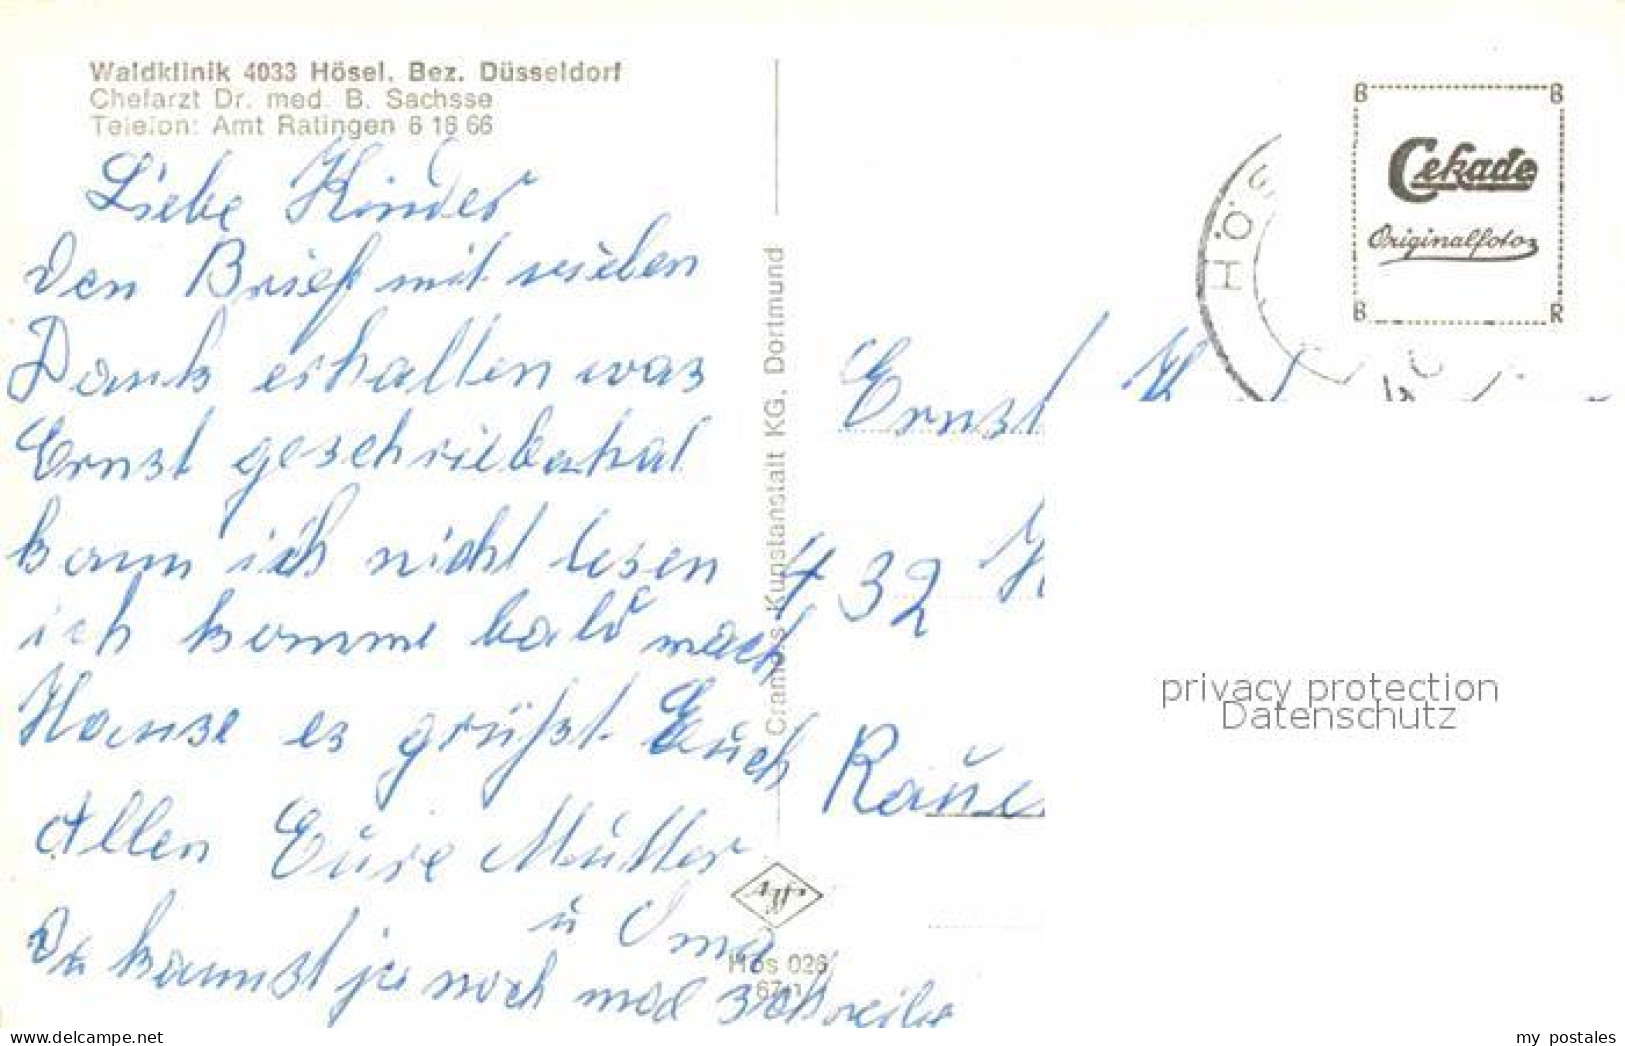 Waldklinik 4033 Hösel, Bez. Düsseldorf
Chefarzt Dr. med. B. Sachsse
Telefon: Amt Ratingen 6 16 66
Liebe Kinder
Den Brief mit vielen
Dank erhalten was
Ernst geschrieben hat
kann ich nicht lesen
ich komme bald nach
Hause es grüßt Euch
Allen Eure Mutter
u Oma
Du kannst ja noch mal schreiben
Cramers Kunstanstalt KG, Dortmund
Hös 026
HÖS
B B
Cekade
Originalfoto
B R
Ernst
432
privacy protection
Datenschutz
delcampe.net
my_postales